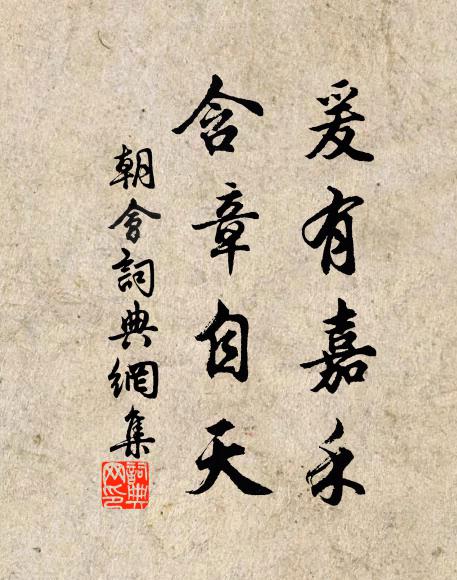 爰有嘉禾
含章自天
朝會詞典網集
詞典网印